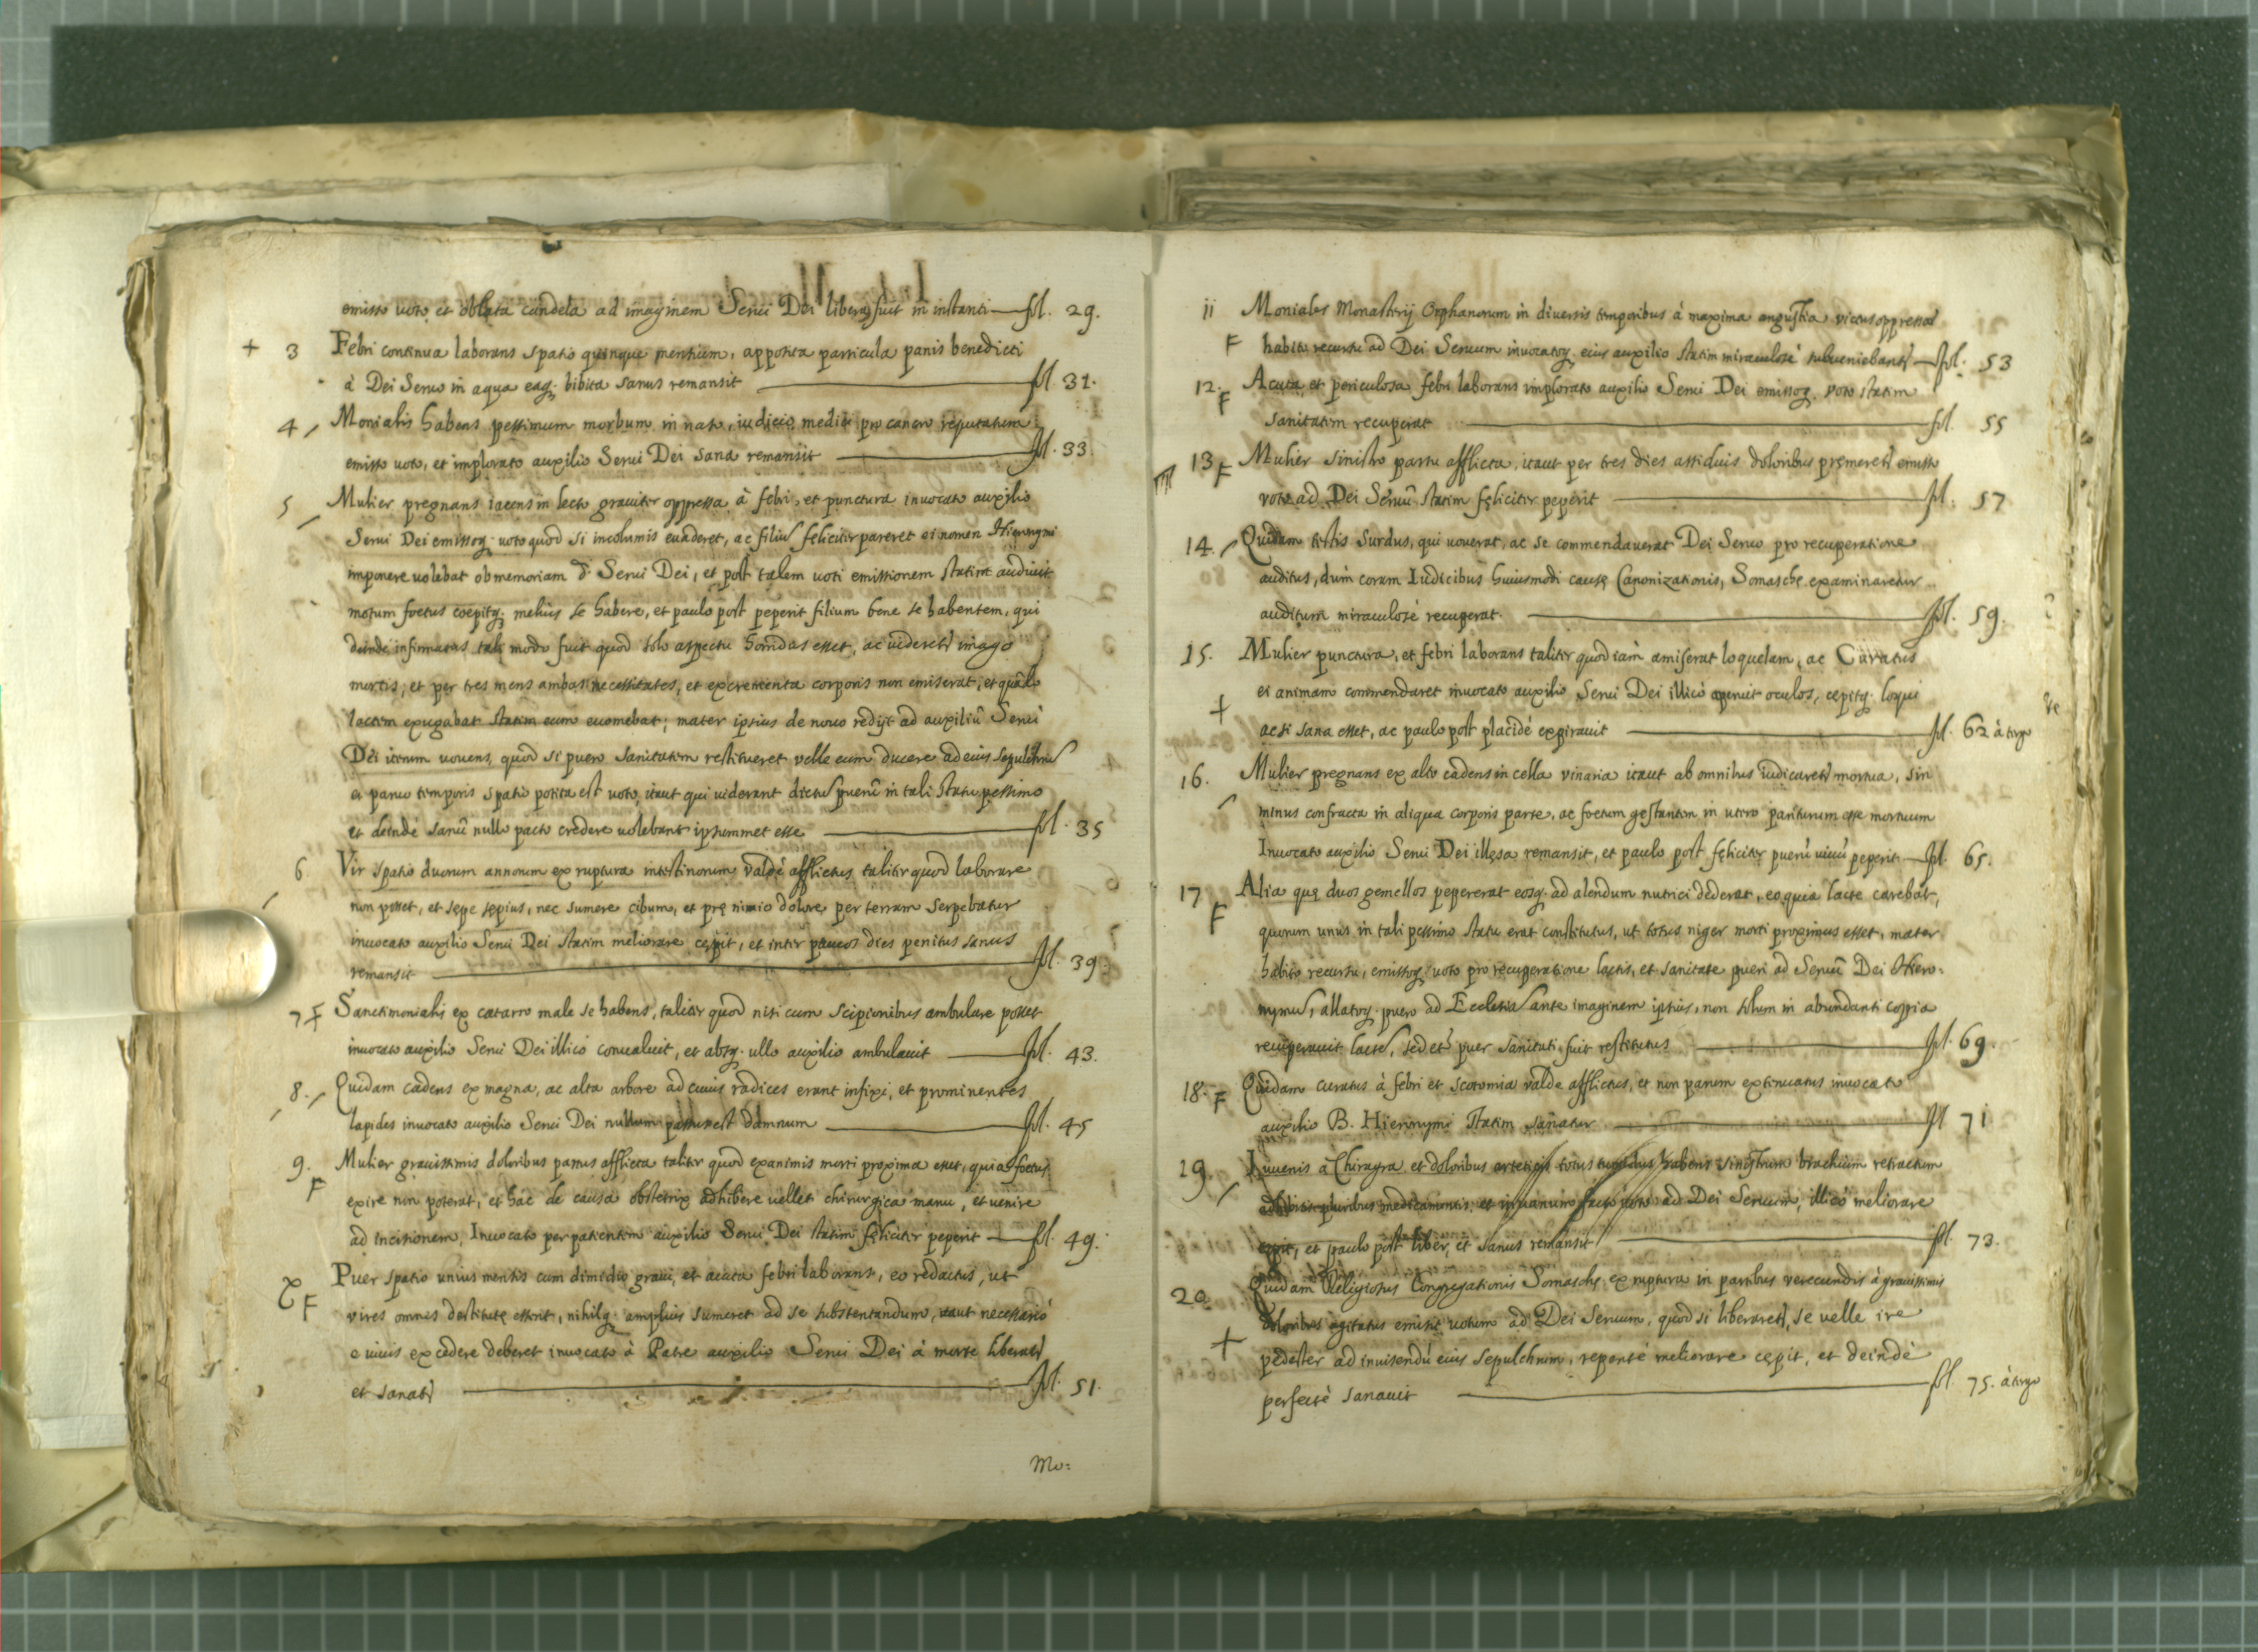 emisso voto, et oblata candela ad imaginem Serui Dei libera fuit in instanti — fol. 29.
+ 3 Febri continua laborans spatio quinque mensium, apposita particula panis benedicti
à Dei Seruo in aqua eaq. bibita sanus remansit — fol. 31.
4 Monialis habens pessimum morbum in naso, iudicio medici pro cancro reputatum
emisso uoto, et implorato auxilio Serui Dei sana remansit — fol. 33.
5 Mulier pregnans iacens in lecto grauiter oppressa à febri, et punctura inuocato auxilio
Serui Dei emissoq. uoto quod si incolumis euaderet, ac filiu feliciter pareret ei nomen Hieronymi
imponere uolebat ob memoriam d. Serui Dei, et post talem uoti emissionem statim audiuit
motum foetus coepitq. melius se habere, et paulo post peperit filium bene se habentem, qui
deinde infirmatus tali modo fuit quod solo aspectu horridus esset, ac uideretr imago
mortis, et per tres menses ambas necessitates, et excrementa corporis non emiserat, et quādo
lactem exugabat statim eum euomebat; mater ipsius de nouo redijt ad auxiliū Serui
Dei iterum uouens, quod si puero sanitatem restitueret velle eum ducere ad eius sepulchru
et paruo temporis spatio potita est uoto, itaut qui uiderant dictu puerū in tali statu pessimo
et deinde sanū nullo pacto credere uolebant ipsummet esse — fol. 35
6 Vir spatio duorum annorum ex ruptura intestinorum valdè afflictus taliter quod laborare
non posset, et sepe sepius, nec sumere cibum, et prę nimio dolore per terram serpebatur
inuocato auxilio Serui Dei statim meliorare cępit, et inter paucos dies penitus sanus
remansit — fol. 39.
7 F Sanctimonialis ex catarro male se habens, taliter quod nisi cum scipionibus ambulare posset
inuocato auxilio Serui Dei illico conualuit, et absq. ullo auxilio ambulauit — fol. 43.
8. Quidam cadens ex magna, ac alta arbore ad cuius radices erant infixi, et prominentes
lapides inuocato auxilio Serui Dei nullum passus est damnum — fol. 45
9. F Mulier grauissimis doloribus partus afflicta taliter quod exanimis morti proxima esset, quia foetus
exire non poterat, et hac de causa obstetrix adhibere uellet chirurgica manu, et uenire
ad incisionem, Inuocato per patientem auxilio Serui Dei statim feliciter peperit — fol. 49.
F Puer spatio unius mensis cum dimidio graui, et acuta febri laborans, eo redactus, ut
vires omnes destitutę essent, nihilq. amplius sumeret ad se substentandum, itaut necessariò
e uiuis excedere deberet inuocato à Patre auxilio Serui Dei à morte liberatr
et sanatr — fol. 51.
Mo:
11 Moniales Monasterij Orphanorum in diuersis temporibus à maxima angustia victus oppressae
F habito recursu ad Dei Seruum inuocatoq. eius auxilio statim miraculosè subueniebantr — fol. 53
12. F Acuta, et periculosa febri laborans implorato auxilio Serui Dei emissoq. voto statim
sanitatem recuperat — fol. 55
13 F Mulier sinistro partu afflicta, itaut per tres dies assiduis doloribus pręmeretr emisso
voto ad Dei Seruū statim fęliciter peperit — fol. 57
14. Quidam testis surdus, qui uouerat, ac se commendauerat Dei Seruo pro recuperatione
auditus, dum coram Iudicibus huiusmodi causę Canonizationis, Somaschę examinaretur
auditum miraculosè recuperat — fol. 59.
15. Mulier punctura, et febri laborans taliter quod iam amiserat loquelam, ac Curatus
+ ei animam commendaret inuocato auxilio Serui Dei illicò aperuit oculos, cępitq. loqui
acsi sana esset, ac paulo post placidè expirauit — fol. 62 à tergo
16. Mulier pregnans ex alto cadens in cella vinaria itaut ab omnibus iudicaretr mortua, sin
minus confracta in aliqua corporis parte, ac foetum gestantem in utero pariturum esse mortuum
Inuocato auxilio Serui Dei illęsa remansit, et paulo post feliciter puerū uiuū peperit — fol. 65.
17 F Alia quę duos gemellos pepererat eosq. ad alendum nutrici dederat, eo quia lacte carebat,
quorum unus in tali pessimo statu erat constitutus, ut totus niger morti proximus esset, mater
habito recursu, emissoq. uoto pro recuperatione lactis, et sanitate pueri ad Seruū Dei Hiero:
nymu, allatoq. puero ad Ecclesia ante imaginem ipsius, non solum in abundanti coppia
recuperauit lacte, sed et puer sanitati fuit restitutus — fol. 69.
18. F Quidam curatus à febri et scotomia valde afflictus, et non parum extenuatus inuocato
auxilio B. Hieronymi statim sanatur — fol 71
19. Iuuenis a Chiragra et doloribus totus habens sinistrum brachium retractum
adhibitis pluribus medicamentis, et in uanum facto uoto ad Dei Seruum, illicò meliorare
cępit, et paulo post liber, et sanus remansit — fol. 73.
20. Quidam Religiosus Congregationis Somaschę ex ruptura in partibus verecundis à grauissimis
doloribus agitatus emisit uotum ad Dei Seruum, quod si liberaretr, se velle ire
+ pedester ad inuisendū eius sepulchrum, repentè meliorare cępit, et deindè
perfectè sanauit — fol. 75. à tergo